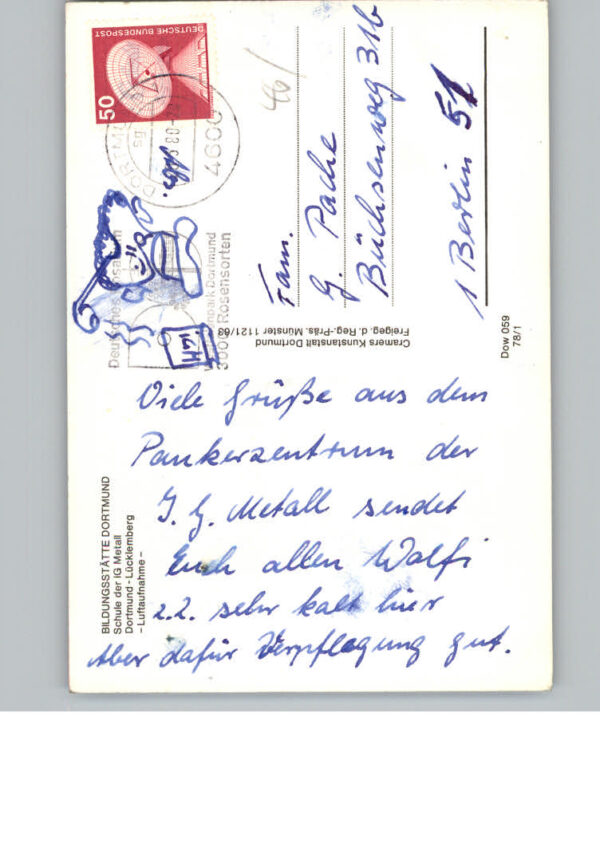 DEUTSCHE BUNDESPOST
50
4600
46/
Fam.
G. Pache
Büchsenweg 31b
1 Berlin 51
Deutsches
park Dortmund
Rosensorten
Cramers Kunstanstalt Dortmund
Freigeg. d. Reg.-Präs. Münster 1121/63
Dow 059
78/1
BILDUNGSSTÄTTE DORTMUND
Schule der IG Metall
Dortmund - Lücklemberg
- Luftaufnahme -
Viele Grüße aus dem
Pankerzentrum der
I. G. Metall sendet
Euch allen Wolfi
z.Z. sehr kalt hier
Aber dafür Verpflegung gut.